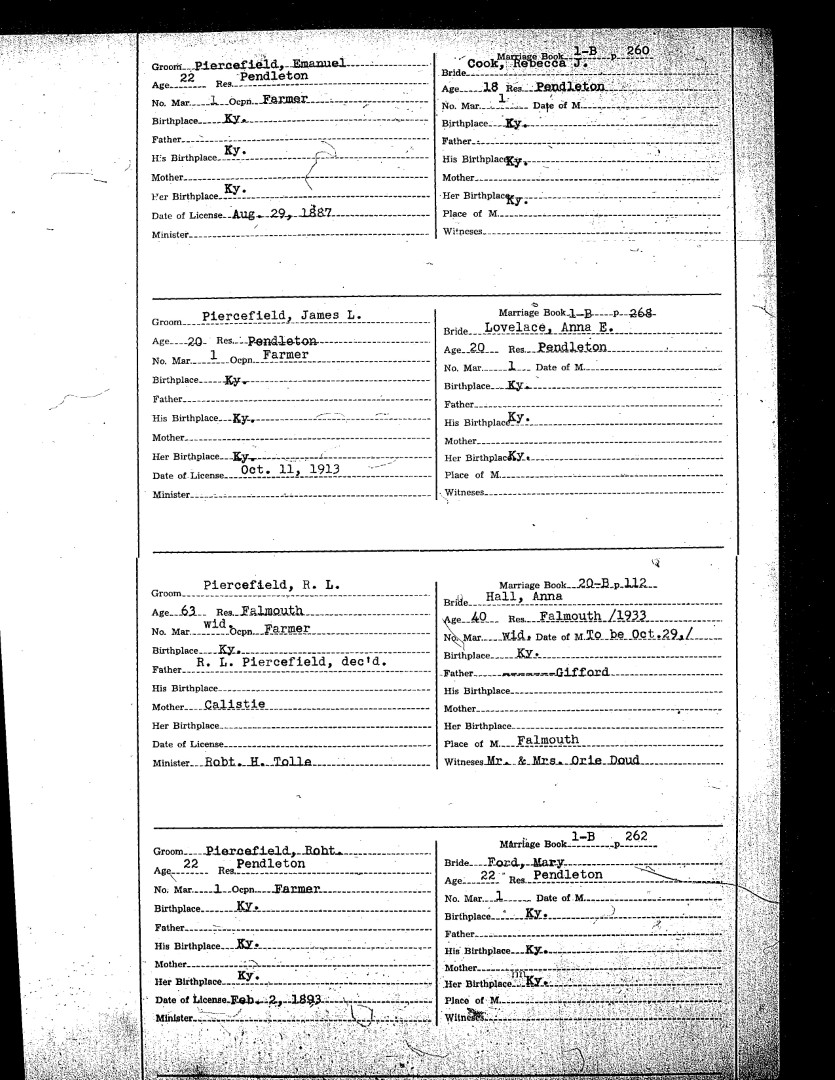 Groom Piercefield, Emanuel
Age 22 Res. Pendleton
No. Mar. 1 Ocpn. Farmer
Birthplace Ky.
Father
His Birthplace Ky.
Mother
Her Birthplace Ky.
Date of License Aug. 29, 1887
Minister
Marriage Book 1-B p. 260
Bride Cook, Rebecca J.
Age 18 Res. Pendleton
No. Mar. 1 Date of M.
Birthplace Ky.
Father
His Birthplace Ky.
Mother
Her Birthplace Ky.
Place of M.
Witnesses
Groom Piercefield, James L.
Age 20 Res. Pendleton
No. Mar. 1 Ocpn. Farmer
Birthplace Ky.
Father
His Birthplace Ky.
Mother
Her Birthplace Ky.
Date of License Oct. 11, 1913
Minister
Marriage Book 1-B p 268
Bride Lovelace, Anna E.
Age 20 Res. Pendleton
No. Mar. 1 Date of M.
Birthplace Ky.
Father
His Birthplace Ky.
Mother
Her Birthplace Ky.
Place of M.
Witnesses
Groom Piercefield, R. L.
Age 63 Res. Falmouth
No. Mar. wid. Ocpn. Farmer
Birthplace Ky.
Father R. L. Piercefield, dec'd.
His Birthplace
Mother Calistie
Her Birthplace
Date of License
Minister Robt. H. Tolle
Marriage Book 20-B p 112
Bride Hall, Anna
Age 40 Res. Falmouth /1933
No. Mar. wid. Date of M. To be Oct.29,/
Birthplace Ky.
Father -------Gifford
His Birthplace
Mother
Her Birthplace
Place of M. Falmouth
Witnesses Mr. & Mrs. Orie Doud
Groom Piercefield, Robt.
Age 22 Res. Pendleton
No. Mar. 1 Ocpn. Farmer
Birthplace Ky.
Father
His Birthplace Ky.
Mother
Her Birthplace Ky.
Date of License Feb. 2, 1893
Minister
Marriage Book 1-B p. 262
Bride Ford, Mary
Age 22 Res. Pendleton
No. Mar. 1 Date of M.
Birthplace Ky.
Father
His Birthplace Ky.
Mother
Her Birthplace Ky.
Place of M.
Witnesses